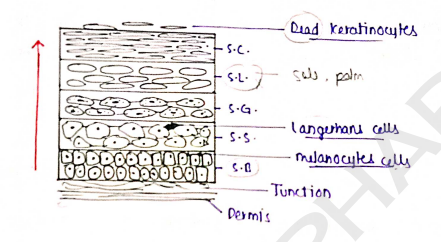 Dead Keratinocytes
S.C.
S.L. sole, palm
S.G.
Langerhans cells
S.S.
melanocytes cells
S.B
Junction
Dermis